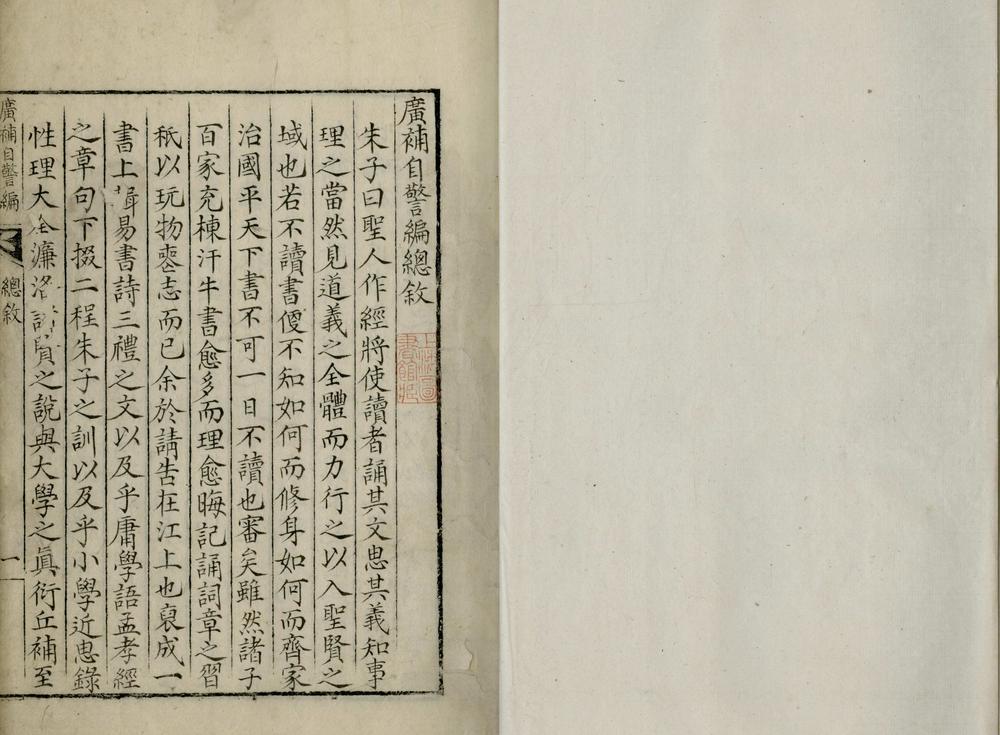 廣補自警編總敘
朱子曰聖人作經將使讀者誦其文思其義知事
理之當然見道義之全體而力行之以入聖賢之
域也若不讀書便不知如何而修身如何而齊家
治國平天下書不可一日不讀也審矣雖然諸子
百家充棟汗牛書愈多而理愈晦記誦詞章之習
秪以玩物喪志而已余於請告在江上也裒成一
書上輯易書詩三禮之文以及乎庸學語孟孝經
之章句下掇二程朱子之訓以及乎小學近思錄
性理大全濂洛諸賢之說與大學之眞衍丘補至
廣補自警編
總敘
一
上海圖書館藏